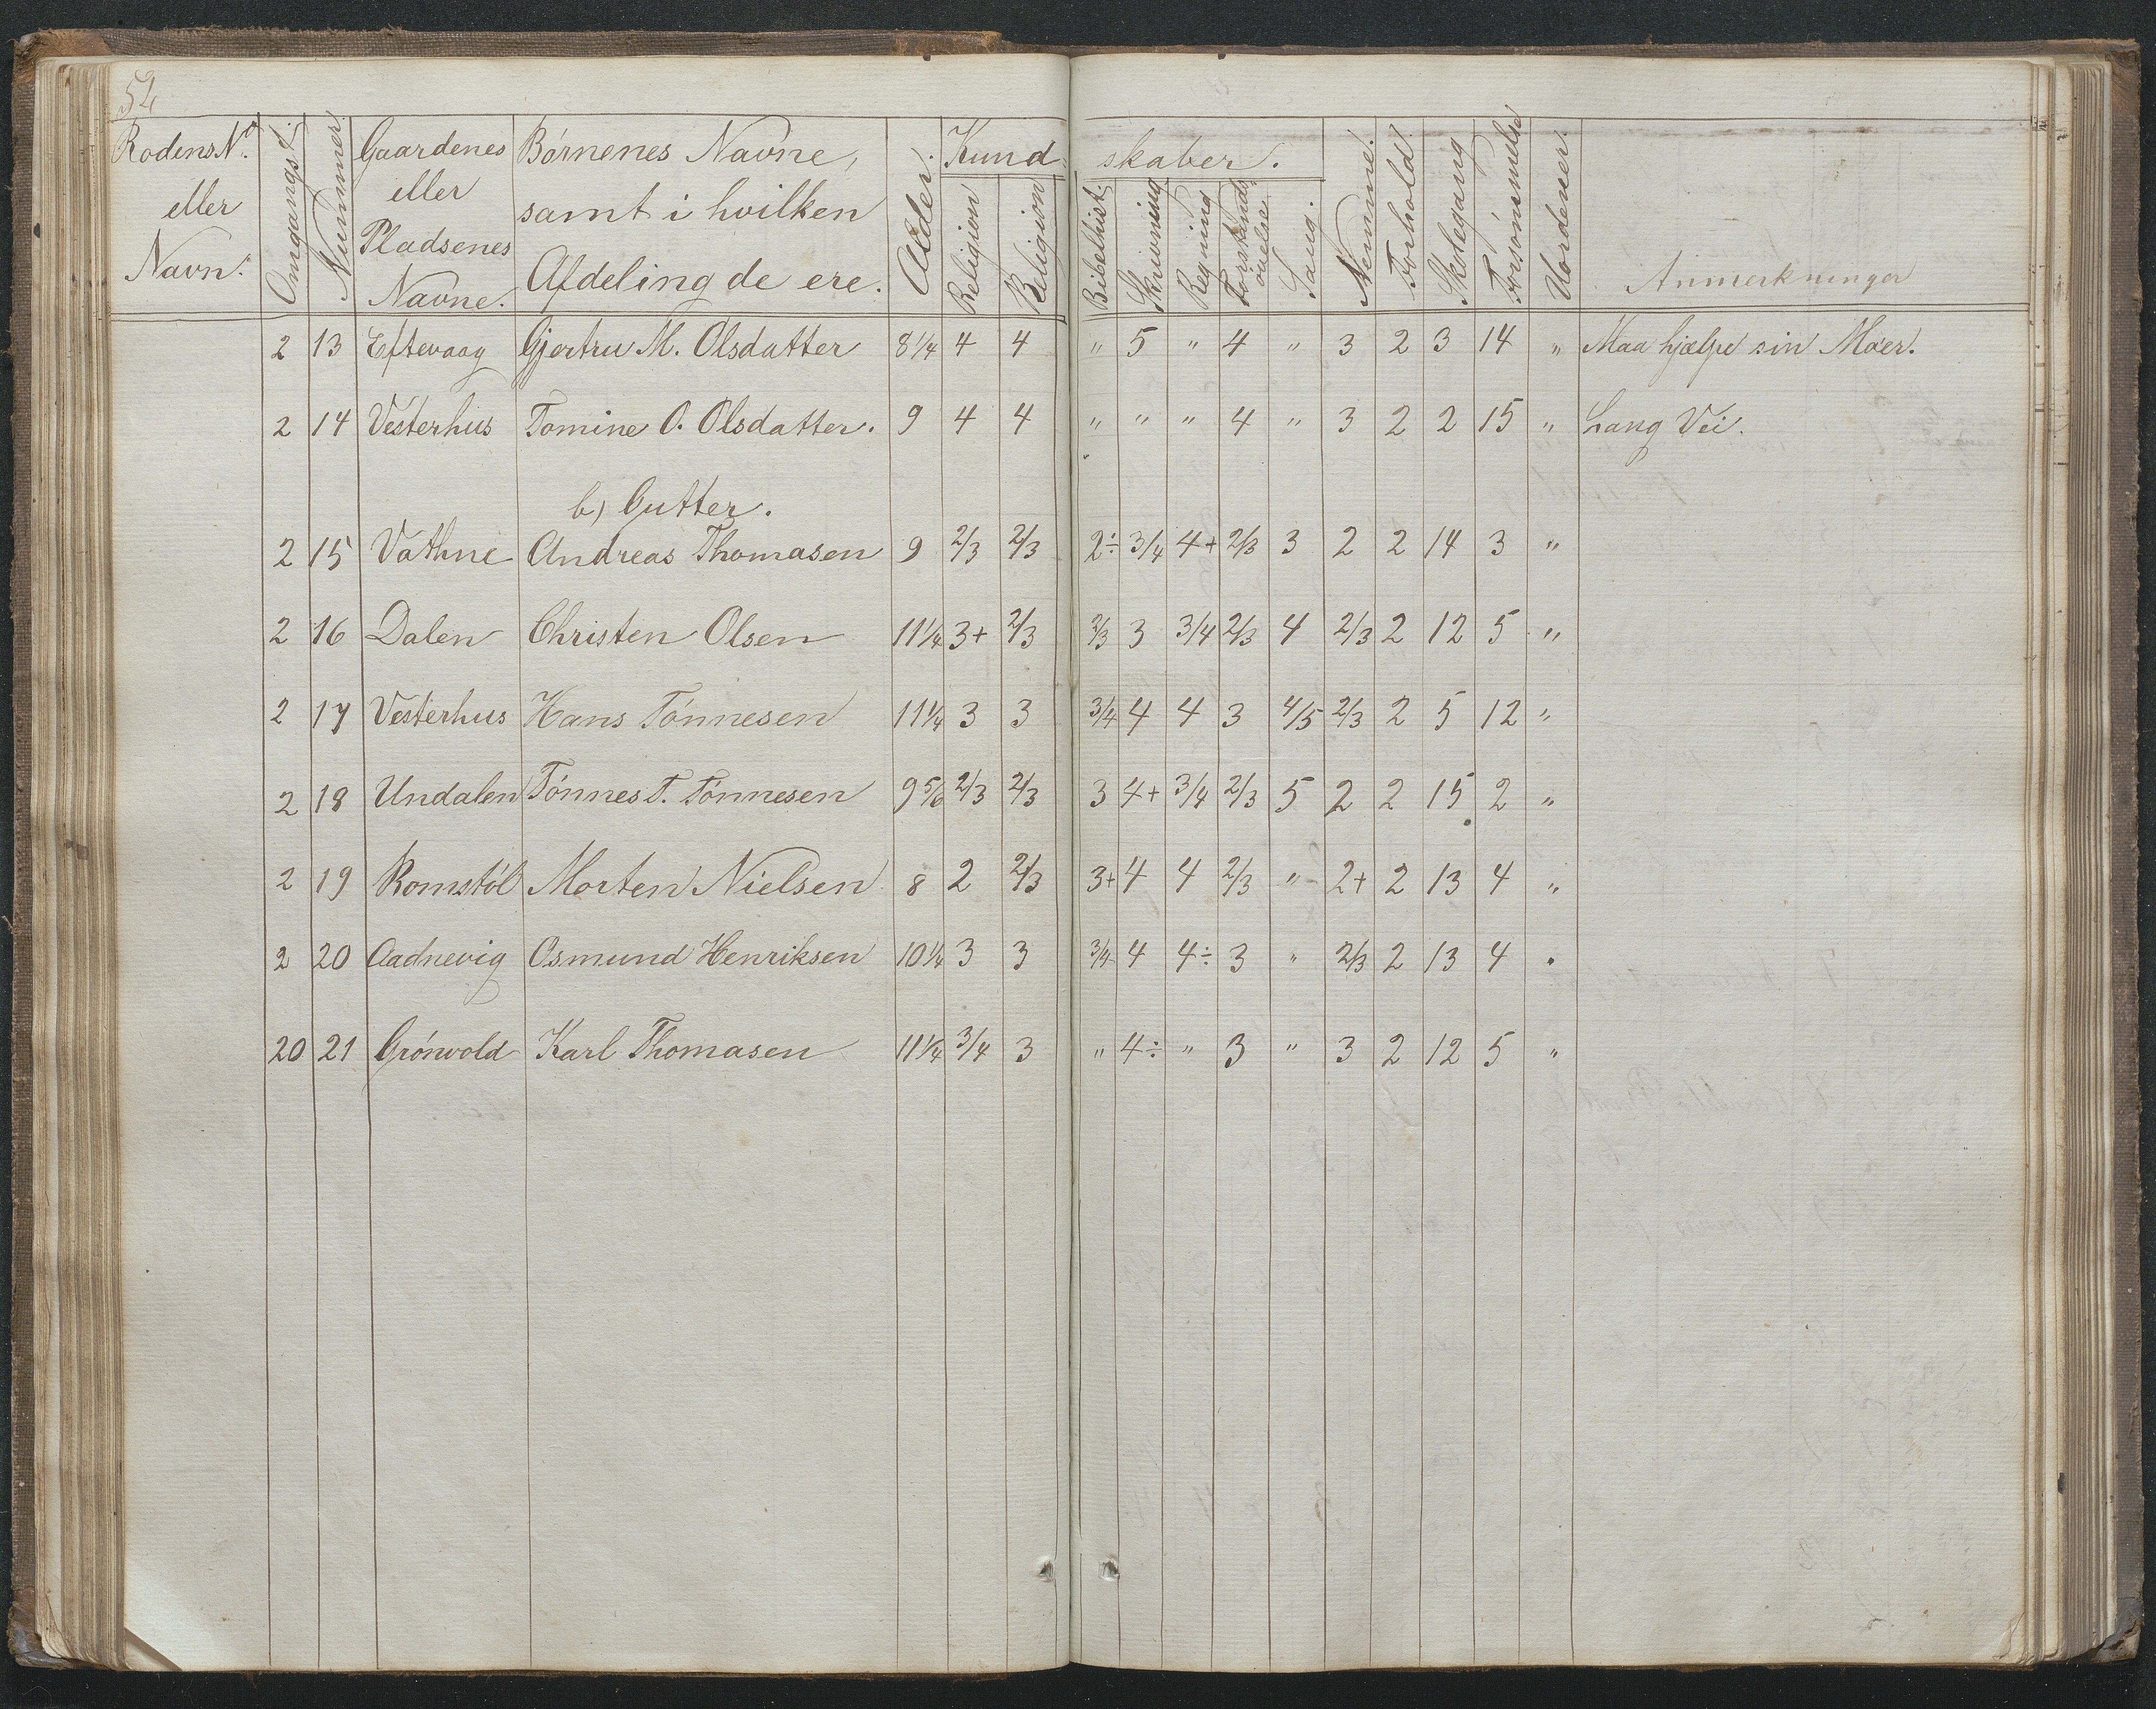 52
Rodens No. eller Navn. Omgangst. Nummer. Gaardenes eller Pladsenes Navne. Børnenes Navne, samt i hvilken Afdeling de ere. Alder. Kundskaber. Religion Religion Bibelhist. Skrivning Regning Forstands øvelse. Sang. Nemme. Forhold. Skolegang Forsømmelse Uordener. Anmerkninger
2 13 Eftevaag Gjertru M. Olsdatter 8 1/4 4 4 " 5 " 4 " 3 2 3 14 " Maa hjælpe sin Moer.
2 14 Vesterhus Tomine O. Olsdatter. 9 4 4 " " " 4 " 3 2 2 15 " Lang Vei.
b) Gutter.
2 15 Vathne Andreas Thomasen 9 2/3 2/3 2÷ 3/4 4+ 2/3 3 2 2 14 3 "
2 16 Dalen Christen Olsen 11 1/4 3+ 2/3 2/3 3 3/4 2/3 4 2/3 2 12 5 "
2 17 Vesterhus Hans Tønnesen 11 1/4 3 3 3/4 4 4 3 4/5 2/3 2 5 12 "
2 18 Undalen Tønnes T. Tønnesen 9 5/6 2/3 2/3 3 4+ 3/4 2/3 5 2 2 15 2 "
2 19 Romstøl Morten Nielsen 8 2 2/3 3+ 4 4 2/3 " 2+ 2 13 4 "
2 20 Aadnevig Osmund Henriksen 10 1/4 3 3 3/4 4 4÷ 3 " 2/3 2 13 4 "
20 21 Grønvold Karl Thomasen 11 1/4 3/4 3 " 4÷ " 3 " 3 2 12 5 "